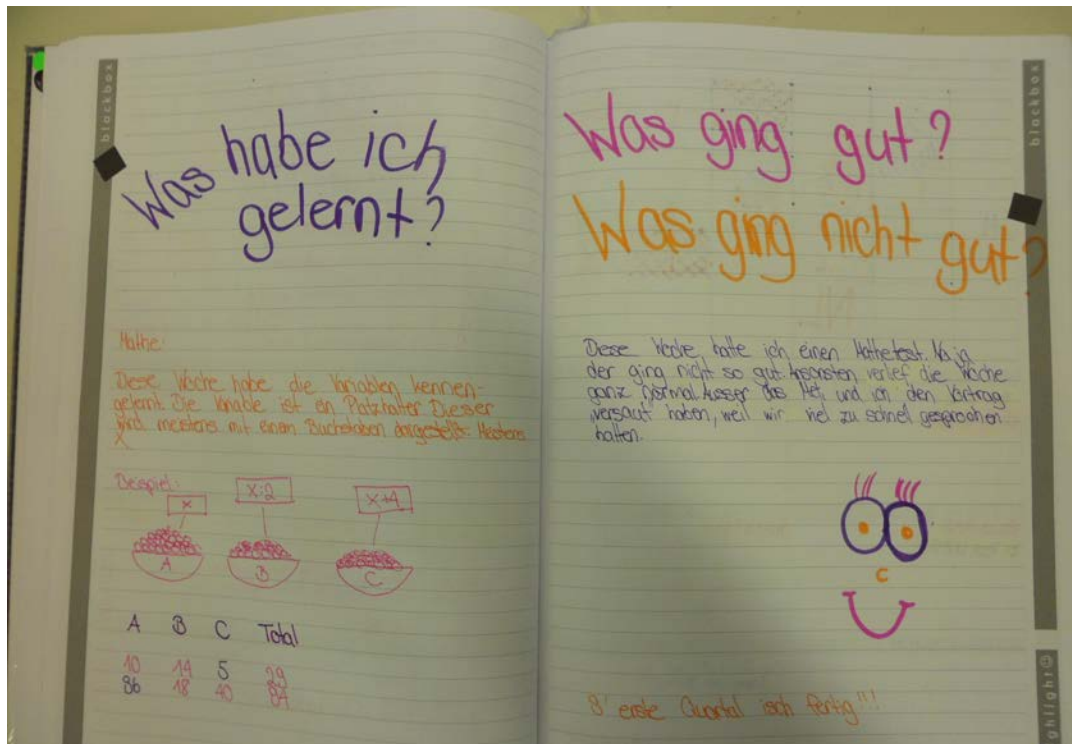 blackbox
Was habe ich
gelernt?
Mathe:
Diese Woche habe die Variablen kennen-
gelernt. Die Variable ist en Platzhalter Dieser
wird meistens mit einem Buchstaben dargestellt. Meistens
X
Beispiel:
x
X:2
X+4
A
B
C
A B C Total
10 14 5 29
36 18 40 84
blackbox
Was ging gut?
Was ging nicht gut?
Diese Woche hatte ich einen Mathetest. Na ja
der ging nicht so gut. Ansonsten verlief die Woche
ganz normal. Ausser das und ich den Vortrag
versaut haben, weil wir viel zu schnell gesprochen
hatten.
S' erste Quartal isch fertig!!!
ghlight